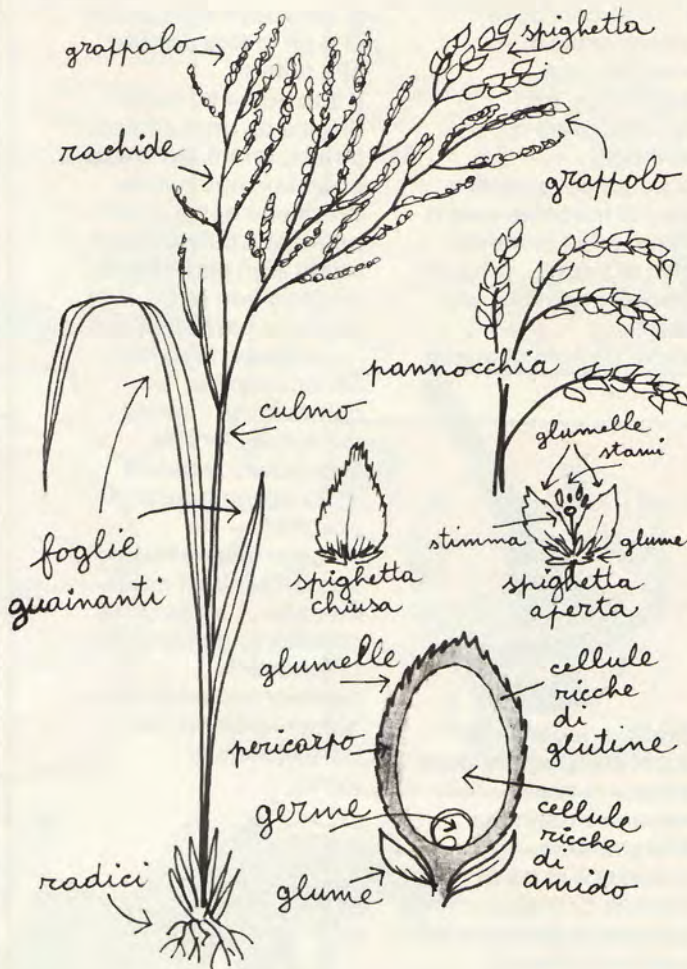 grappolo
spighetta
rachide
grappolo
pannocchia
culmo
glumelle
stami
foglie
guainanti
stimma
glume
spighetta
chiusa
spighetta
aperta
glumelle
cellule
ricche
di
glutine
pericarpo
germe
cellule
ricche
di
amido
glume
radici